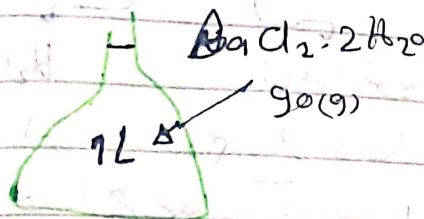 BaCl₂·2H₂O
90(g)
1L